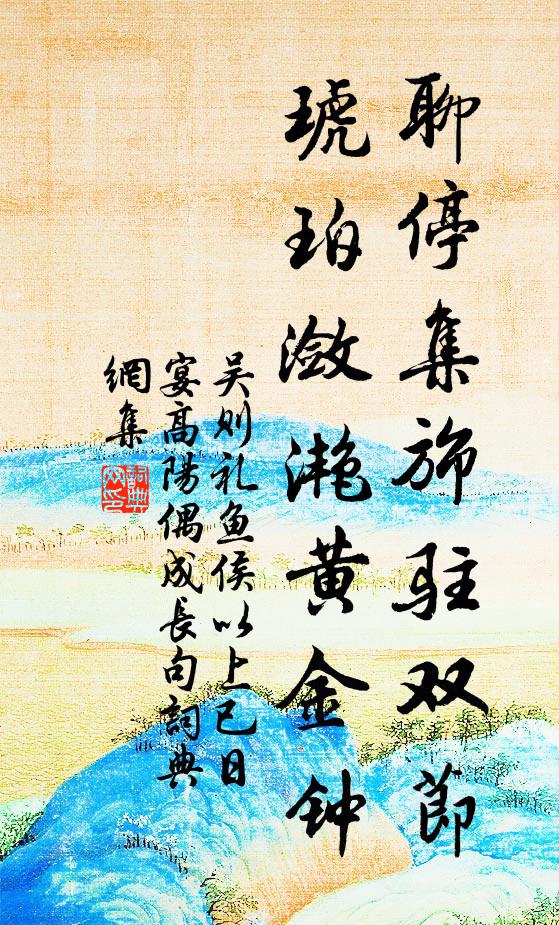 聊停集旆驻双节
琥珀潋滟黄金钟
吴则礼鱼侯以上巳日
宴高陽偶成长句詞典
網集